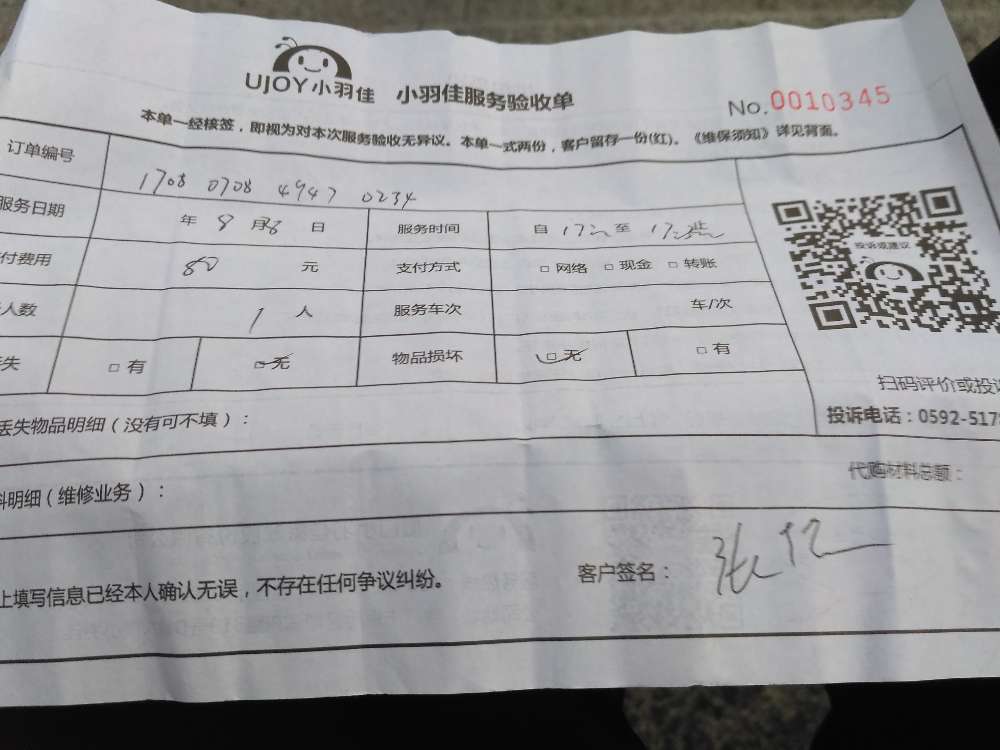 UJOY小羽佳 小羽佳服务验收单
No.0010345
本单一经核签，即视为对本次服务验收无异议。本单一式两份，客户留存一份(红)。《维保须知》详见背面。
订单编号 1708 0708 4947 0234
服务日期 年 8 月 8 日 服务时间 自 17 至 17
付费用 80 元 支付方式 □ 网络 □ 现金 □ 转账
人数 1 人 服务车次 车/次
失 □ 有 □ 无 物品损坏 □ 无 □ 有
投诉或建议
扫码评价或投诉
投诉电话：0592-5178
丢失物品明细（没有可不填）：
料明细（维修业务）： 代购材料总额：
上填写信息已经本人确认无误，不存在任何争议纠纷。 客户签名：张